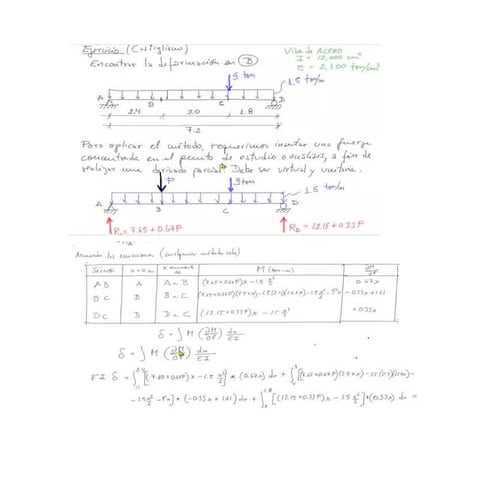 Ejercicio (Castigliano)
Encontrar la deformación en B
Viga de ACERO
I = 12,000 cm⁴
E = 2,100 ton/cm²
9 ton
1.5 ton/m
A B C D
2.4 3.0 1.8
7.2
Para aplicar el método, requerimos insertar una fuerza
concentrada en el punto de estudio o análisis, a fin de
realizar una derivada parcial. Debe ser virtual y unitaria.
P 9 ton
1.5 ton/m
A B C D
R = 7.65 + 0.67P
R_D = 12.15 + 0.33P
Sección x=0 en M (ton-m) ∂M/∂P
AB A A a B (7.65+0.67P)x - 1.5 x²/2 0.67x
BC B B a C (7.65+0.67P)(2.4+x) - 1.5(2.4)(1.2+x) - 1.5 x²/2 - Px -0.33x+1.61
DC D D a C (12.15+0.33P)x - 1.5 x²/2 +0.33x
δ = ∫ M (∂M/∂P) dx/EI
δ = ∫ M (∂M/∂P) dx/EI
EI δ = ∫₀^2.4 [(7.65+0.67P)x - 1.5 x²/2] * (0.67x) dx + ∫₀^3 [(7.65+0.67P)(2.4+x) - 1.5(2.4)(1.2+x) -
- 1.5 x²/2 - Px] * (-0.33x + 1.61) dx + ∫₀^1.8 [(12.15+0.33P)x - 1.5 x²/2] * (0.33x) dx =